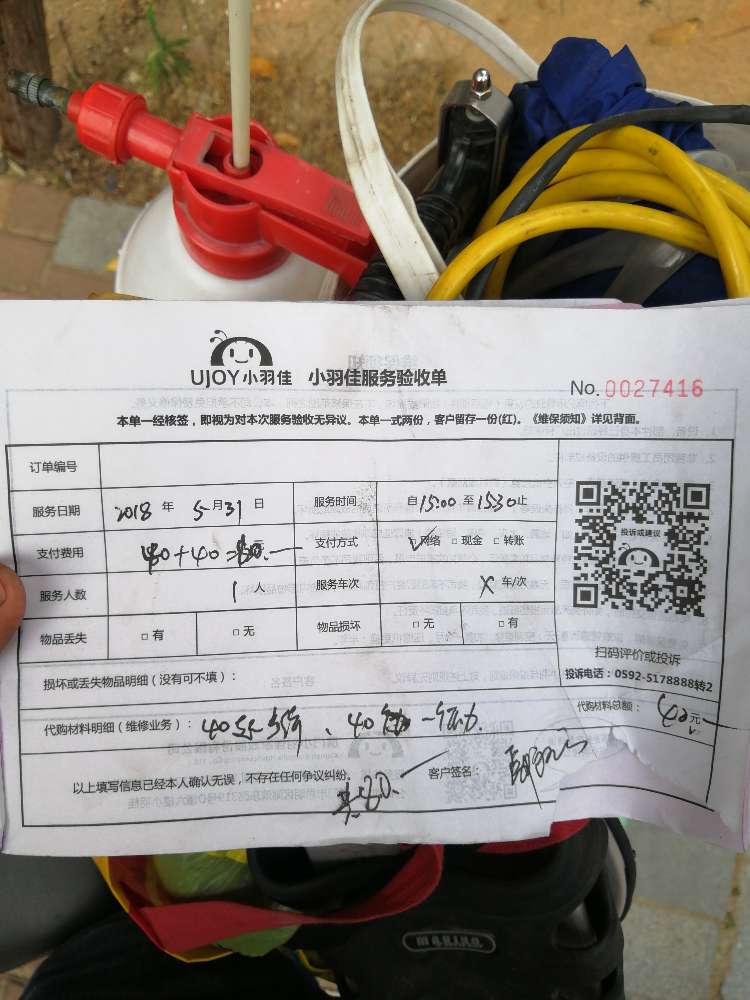 UJOY小羽佳 小羽佳服务验收单
No. 0027416
本单一经核签，即视为对本次服务验收无异议。本单一式两份，客户留存一份(红)。《维保须知》详见背面。
订单编号
服务日期 2018 年 5月31日 服务时间 自15:00 至 1530止
支付费用 40+40=80.元 支付方式 □网络 □现金 □转账
服务人数 1 人 服务车次 X 车/次
物品丢失 □有 □无 物品损坏 □无 □有
投诉或建议
扫码评价或投诉
投诉电话：0592-5178888转2
损坏或丢失物品明细（没有可不填）：
代购材料总额： 40元
代购材料明细（维修业务）： 40 、40
以上填写信息已经本人确认无误，不存在任何争议纠纷。 客户签名：
共80.